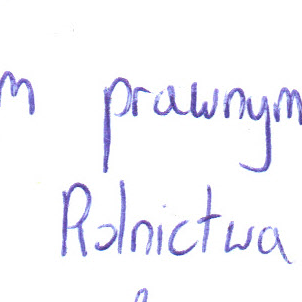 m prawnym
Rolnictwa